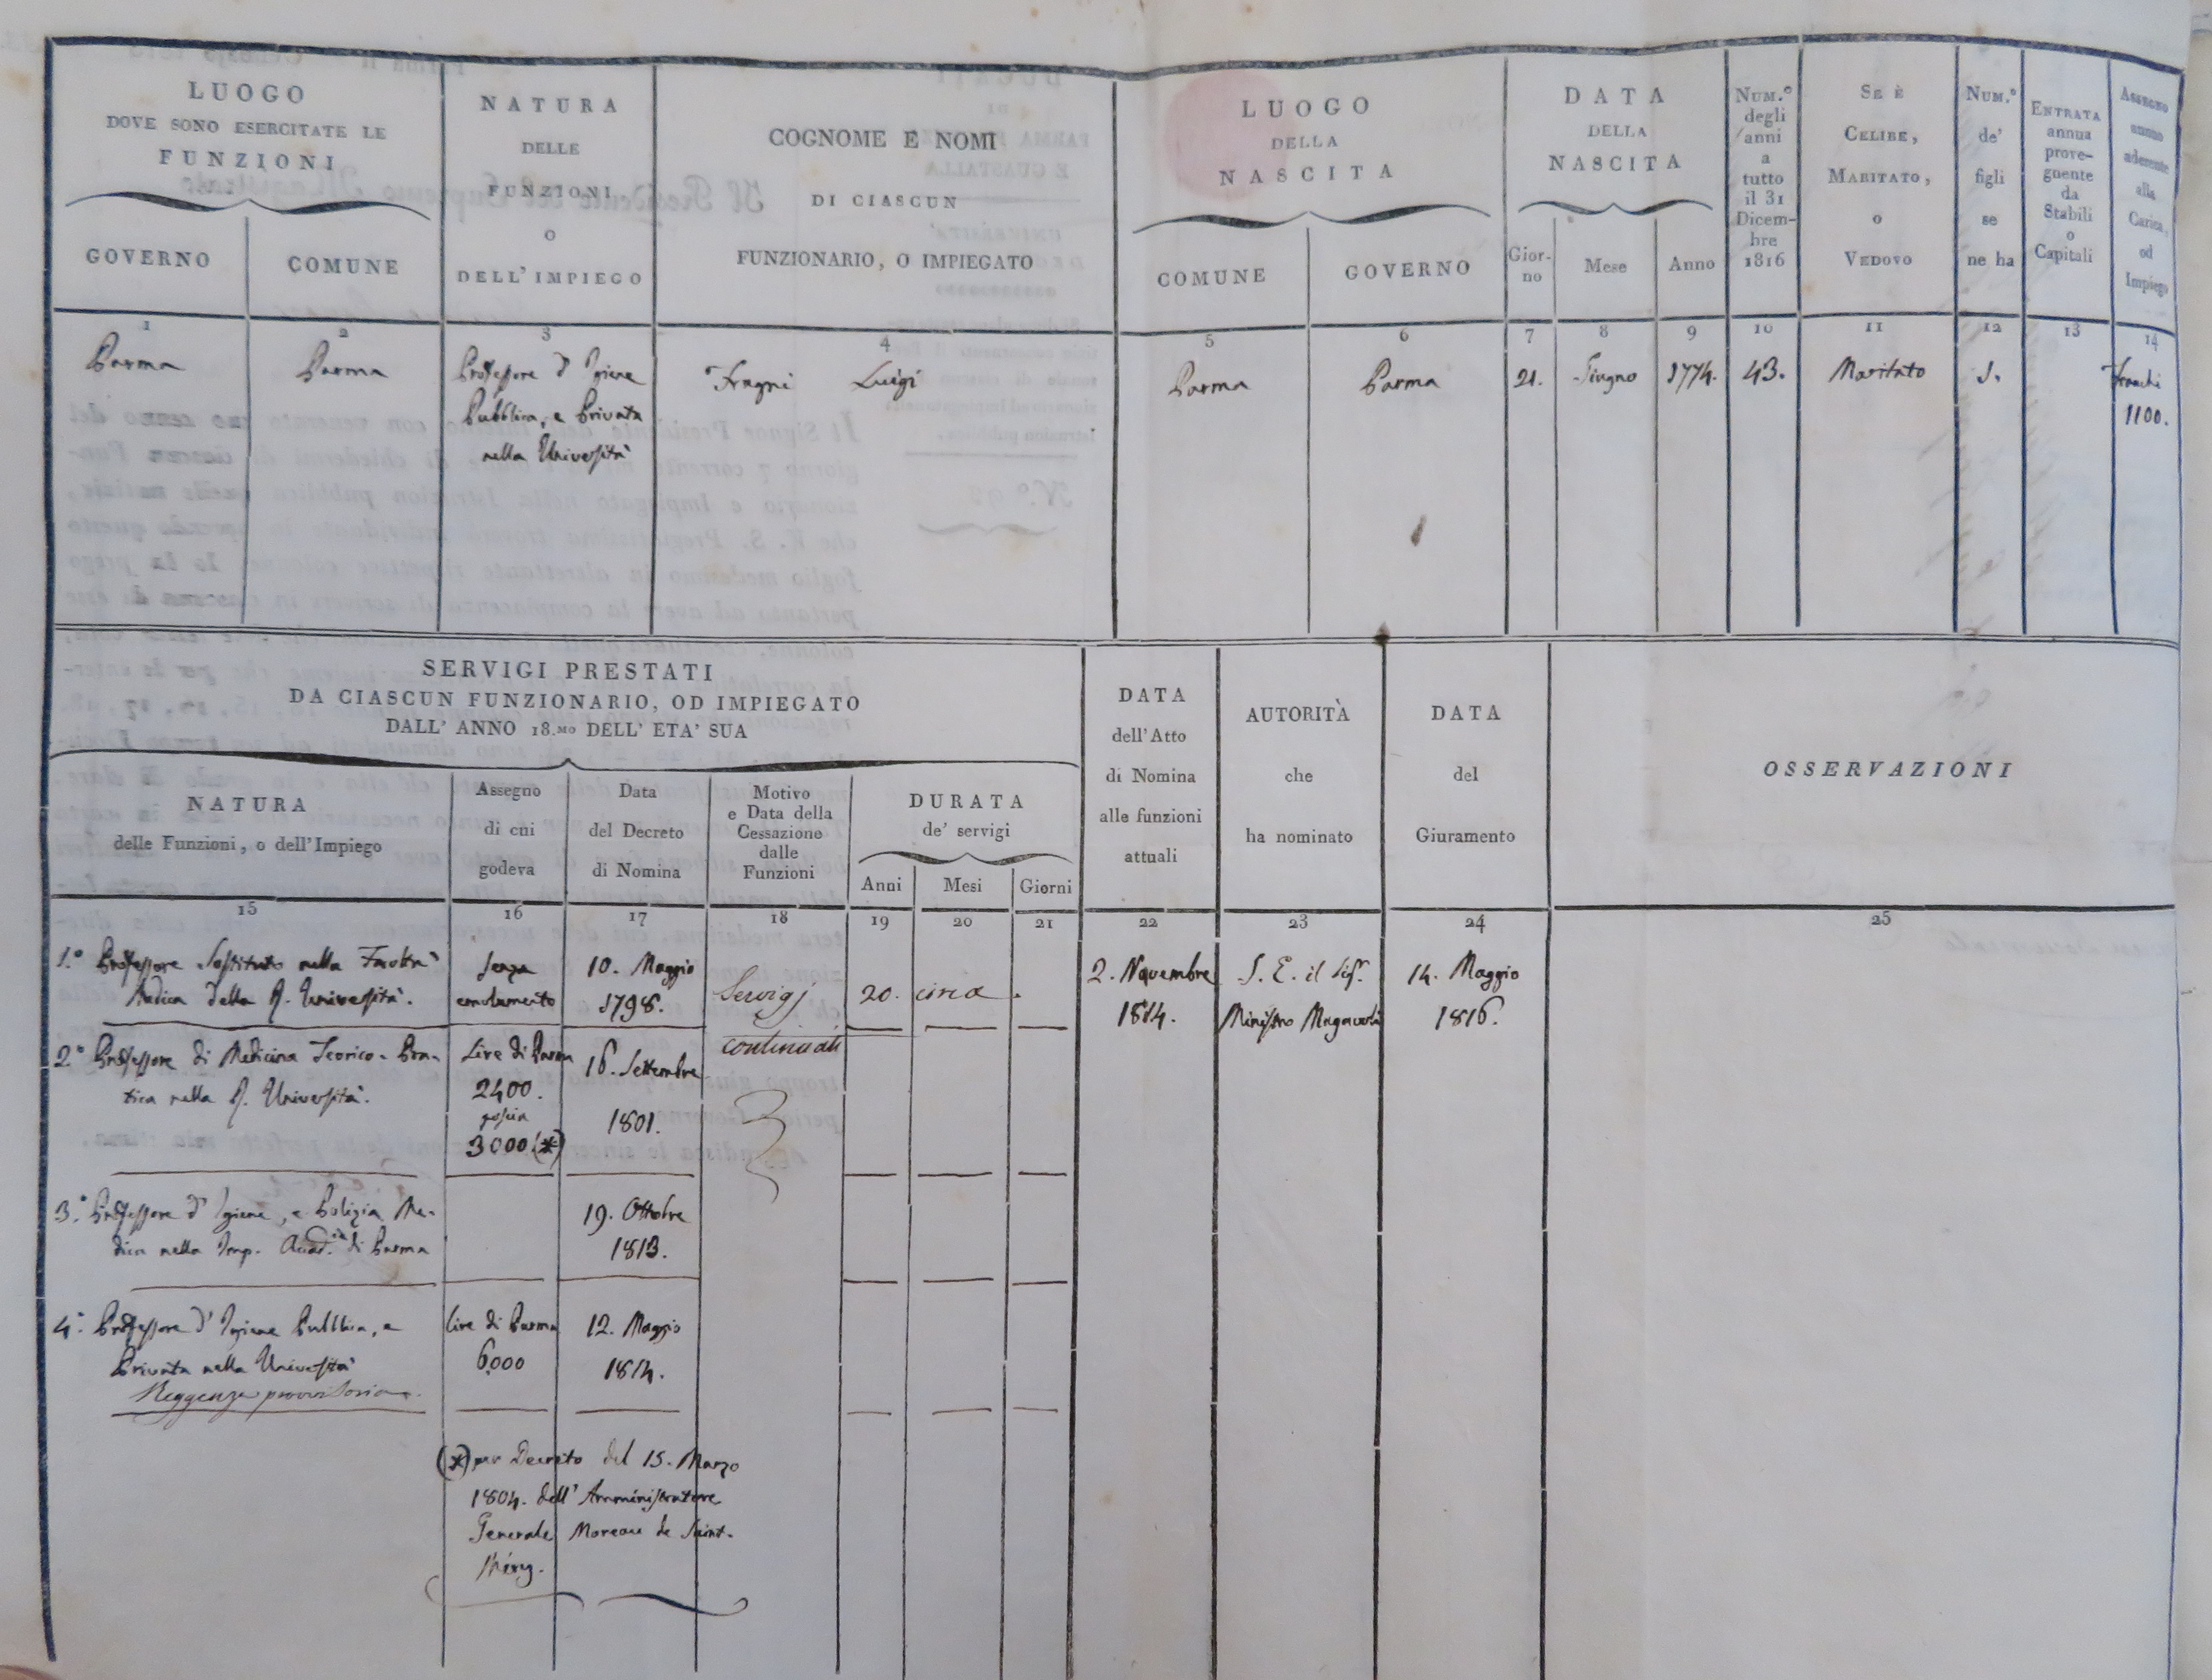 LUOGO
DOVE SONO ESERCITATE LE
FUNZIONI
GOVERNO
COMUNE
NATURA
DELLE
FUNZIONI
O
DELL' IMPIEGO
COGNOME E NOMI
DI CIASCUN
FUNZIONARIO, O IMPIEGATO
LUOGO
DELLA
NASCITA
COMUNE
GOVERNO
DATA
DELLA
NASCITA
Gior-
no
Mese
Anno
NUM.º
degli
anni
a
tutto
il 31
Dicem-
bre
1816
SE È
CELIBE,
MARITATO,
O
VEDOVO
NUM.º
de'
figli
se
ne ha
ENTRATA
annua
prove-
gnente
da
Stabili
o
Capitali
ASSEGNO
annuo
aderente
alla
Carica,
od
Impiego
1 2 3 4 5 6 7 8 9 10 11 12 13 14
Parma
Parma
Professore d' Igiene
Pubblica, e Privata
nella Università
Fragni Luigi
Parma
Parma
21.
Giugno
1774.
43.
Maritato
1.
franchi
1100.
SERVIGI PRESTATI
DA CIASCUN FUNZIONARIO, OD IMPIEGATO
DALL' ANNO 18.MO DELL' ETA' SUA
NATURA
delle Funzioni, o dell'Impiego
Assegno
di cui
godeva
Data
del Decreto
di Nomina
Motivo
e Data della
Cessazione
dalle
Funzioni
DURATA
de' servigi
Anni
Mesi
Giorni
DATA
dell'Atto
di Nomina
alle funzioni
attuali
AUTORITÀ
che
ha nominato
DATA
del
Giuramento
OSSERVAZIONI
15 16 17 18 19 20 21 22 23 24 25
1.º Professore Sostituto nella Facoltà
Medica della R. Università.
Senza
emolumento
10. Maggio
1798.
Servigj
continuati
20. circa.
2. Novembre
1814.
S. E. il Sigr.
Ministro Magawly
14. Maggio
1816.
2º Professore di Medicina Teorico-Pra-
tica nella R. Università.
Lire di Parma
2400.
poscia
3000.(*)
16. Settembre
1801.
3.º Professore d' Igiene, e Polizia Me-
dica nella Imp. Accad.ia di Parma
19. Ottobre
1813.
4.º Professore d' Igiene Pubblica, e
Privata nella Università
Reggenza provvisoria.
Lire di Parma
6000
12. Maggio
1814.
(*) per Decreto del 15. Marzo
1804. dell' Amministratore
Generale Moreau de Saint-
Méry.